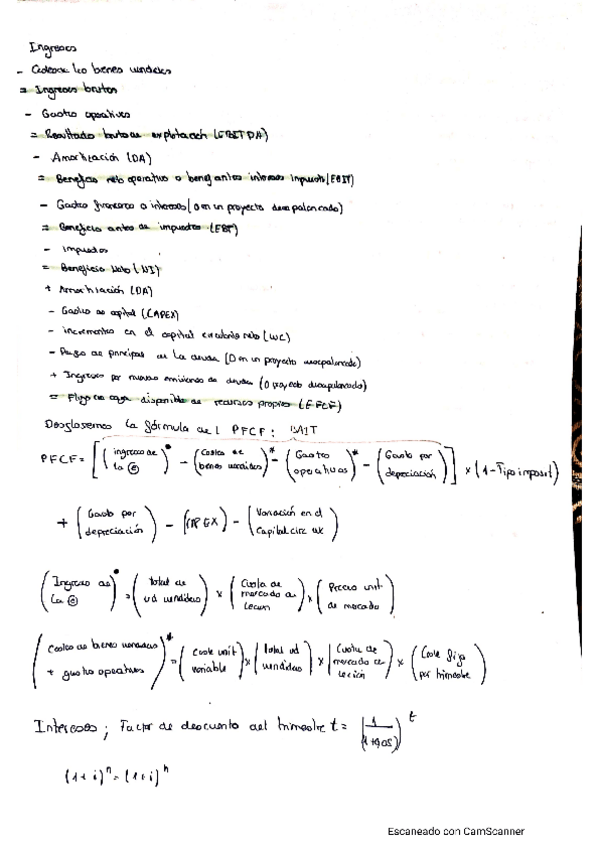 Ingresos
- Costes de los bienes vendidos
= Ingresos brutos
- Gastos operativos
= Resultado bruto de explotación (EBITDA)
- Amortización (DA)
= Beneficio neto operativo o benef antes intereses impuesto (EBIT)
- Gastos financieros o intereses (0 en un proyecto desapalancado)
= Beneficio antes de impuestos (EBT)
- Impuestos
= Beneficio Neto (NI)
+ Amortización (DA)
- Gastos de capital (CAPEX)
- incrementos en el capital circulante neto (WC)
- Pago de principal de la deuda (0 en un proyecto desapalancado)
+ Ingresos por nuevas emisiones de deuda (0 proyecto desapalancado)
= Flujo de caja disponible de recursos propios (EFCF)
Desglosemos la fórmula del PFCF: BAIT
PFCF = [(ingresos de la ©)• - (costes de bienes vendidos)* - (Gastos operativos)* - (Gasto por depreciación)] x (1 - Tipo imposit)
+ (Gasto por depreciación) - (CAPEX) - (Variación en el Capital circ)
(Ingreso de la ©)• = (total de ud vendidas) x (Cuota de mercado de) x (Precio unit de mercado)
(costes de bienes vendidos + gastos operativos)* = (coste unit variable) x (total ud vendidas) x (Cuota de mercado de) x (Coste fijo por trimestre)
Intereses; Factor de descuento del trimestre t = (1 / 1+0,05)^t
(1+i)^n = (1+i)^n
Escaneado con CamScanner